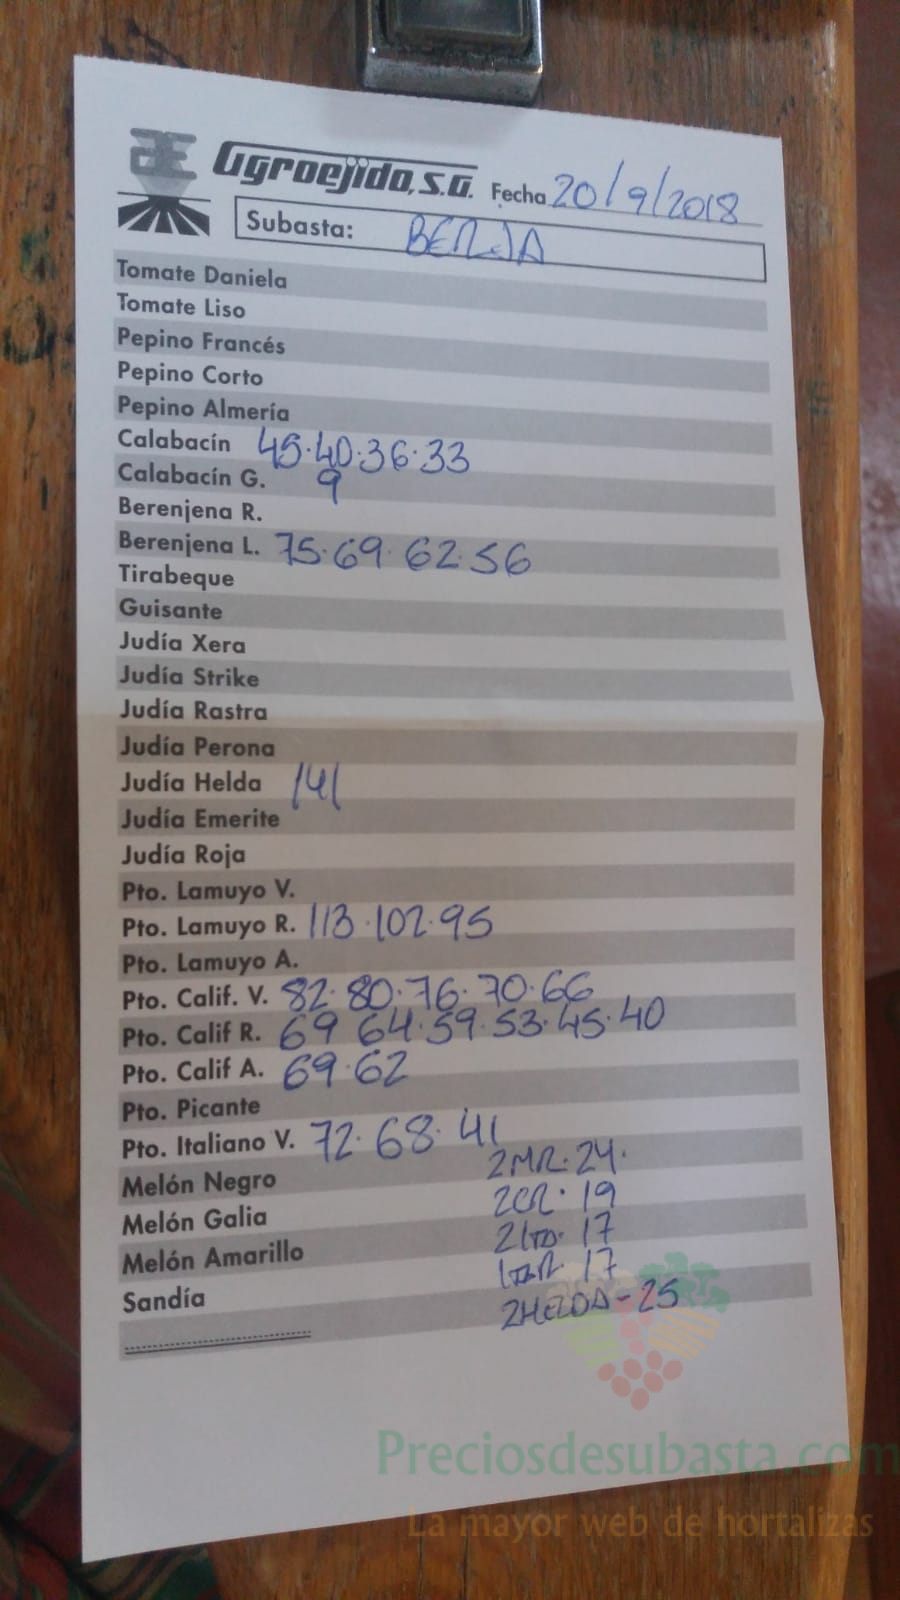 AE Agroejido, S.A. Fecha 20/9/2018
Subasta: BERJA
Tomate Daniela
Tomate Liso
Pepino Francés
Pepino Corto
Pepino Almería
Calabacín 45·40·36·33
Calabacín G. 9
Berenjena R.
Berenjena L. 75·69·62·56
Tirabeque
Guisante
Judía Xera
Judía Strike
Judía Rastra
Judía Perona
Judía Helda 141
Judía Emerite
Judía Roja
Pto. Lamuyo V.
Pto. Lamuyo R. 113·102·95
Pto. Lamuyo A.
Pto. Calif. V. 82·80·76·70·66
Pto. Calif R. 69 64·59·53·45·40
Pto. Calif A. 69·62
Pto. Picante
Pto. Italiano V. 72·68·41
Melón Negro 2MR·24·
Melón Galia 2CR·19
Melón Amarillo 17
Sandía 17
2HELDA-25
Preciosdesubasta.com
La mayor web de hortalizas